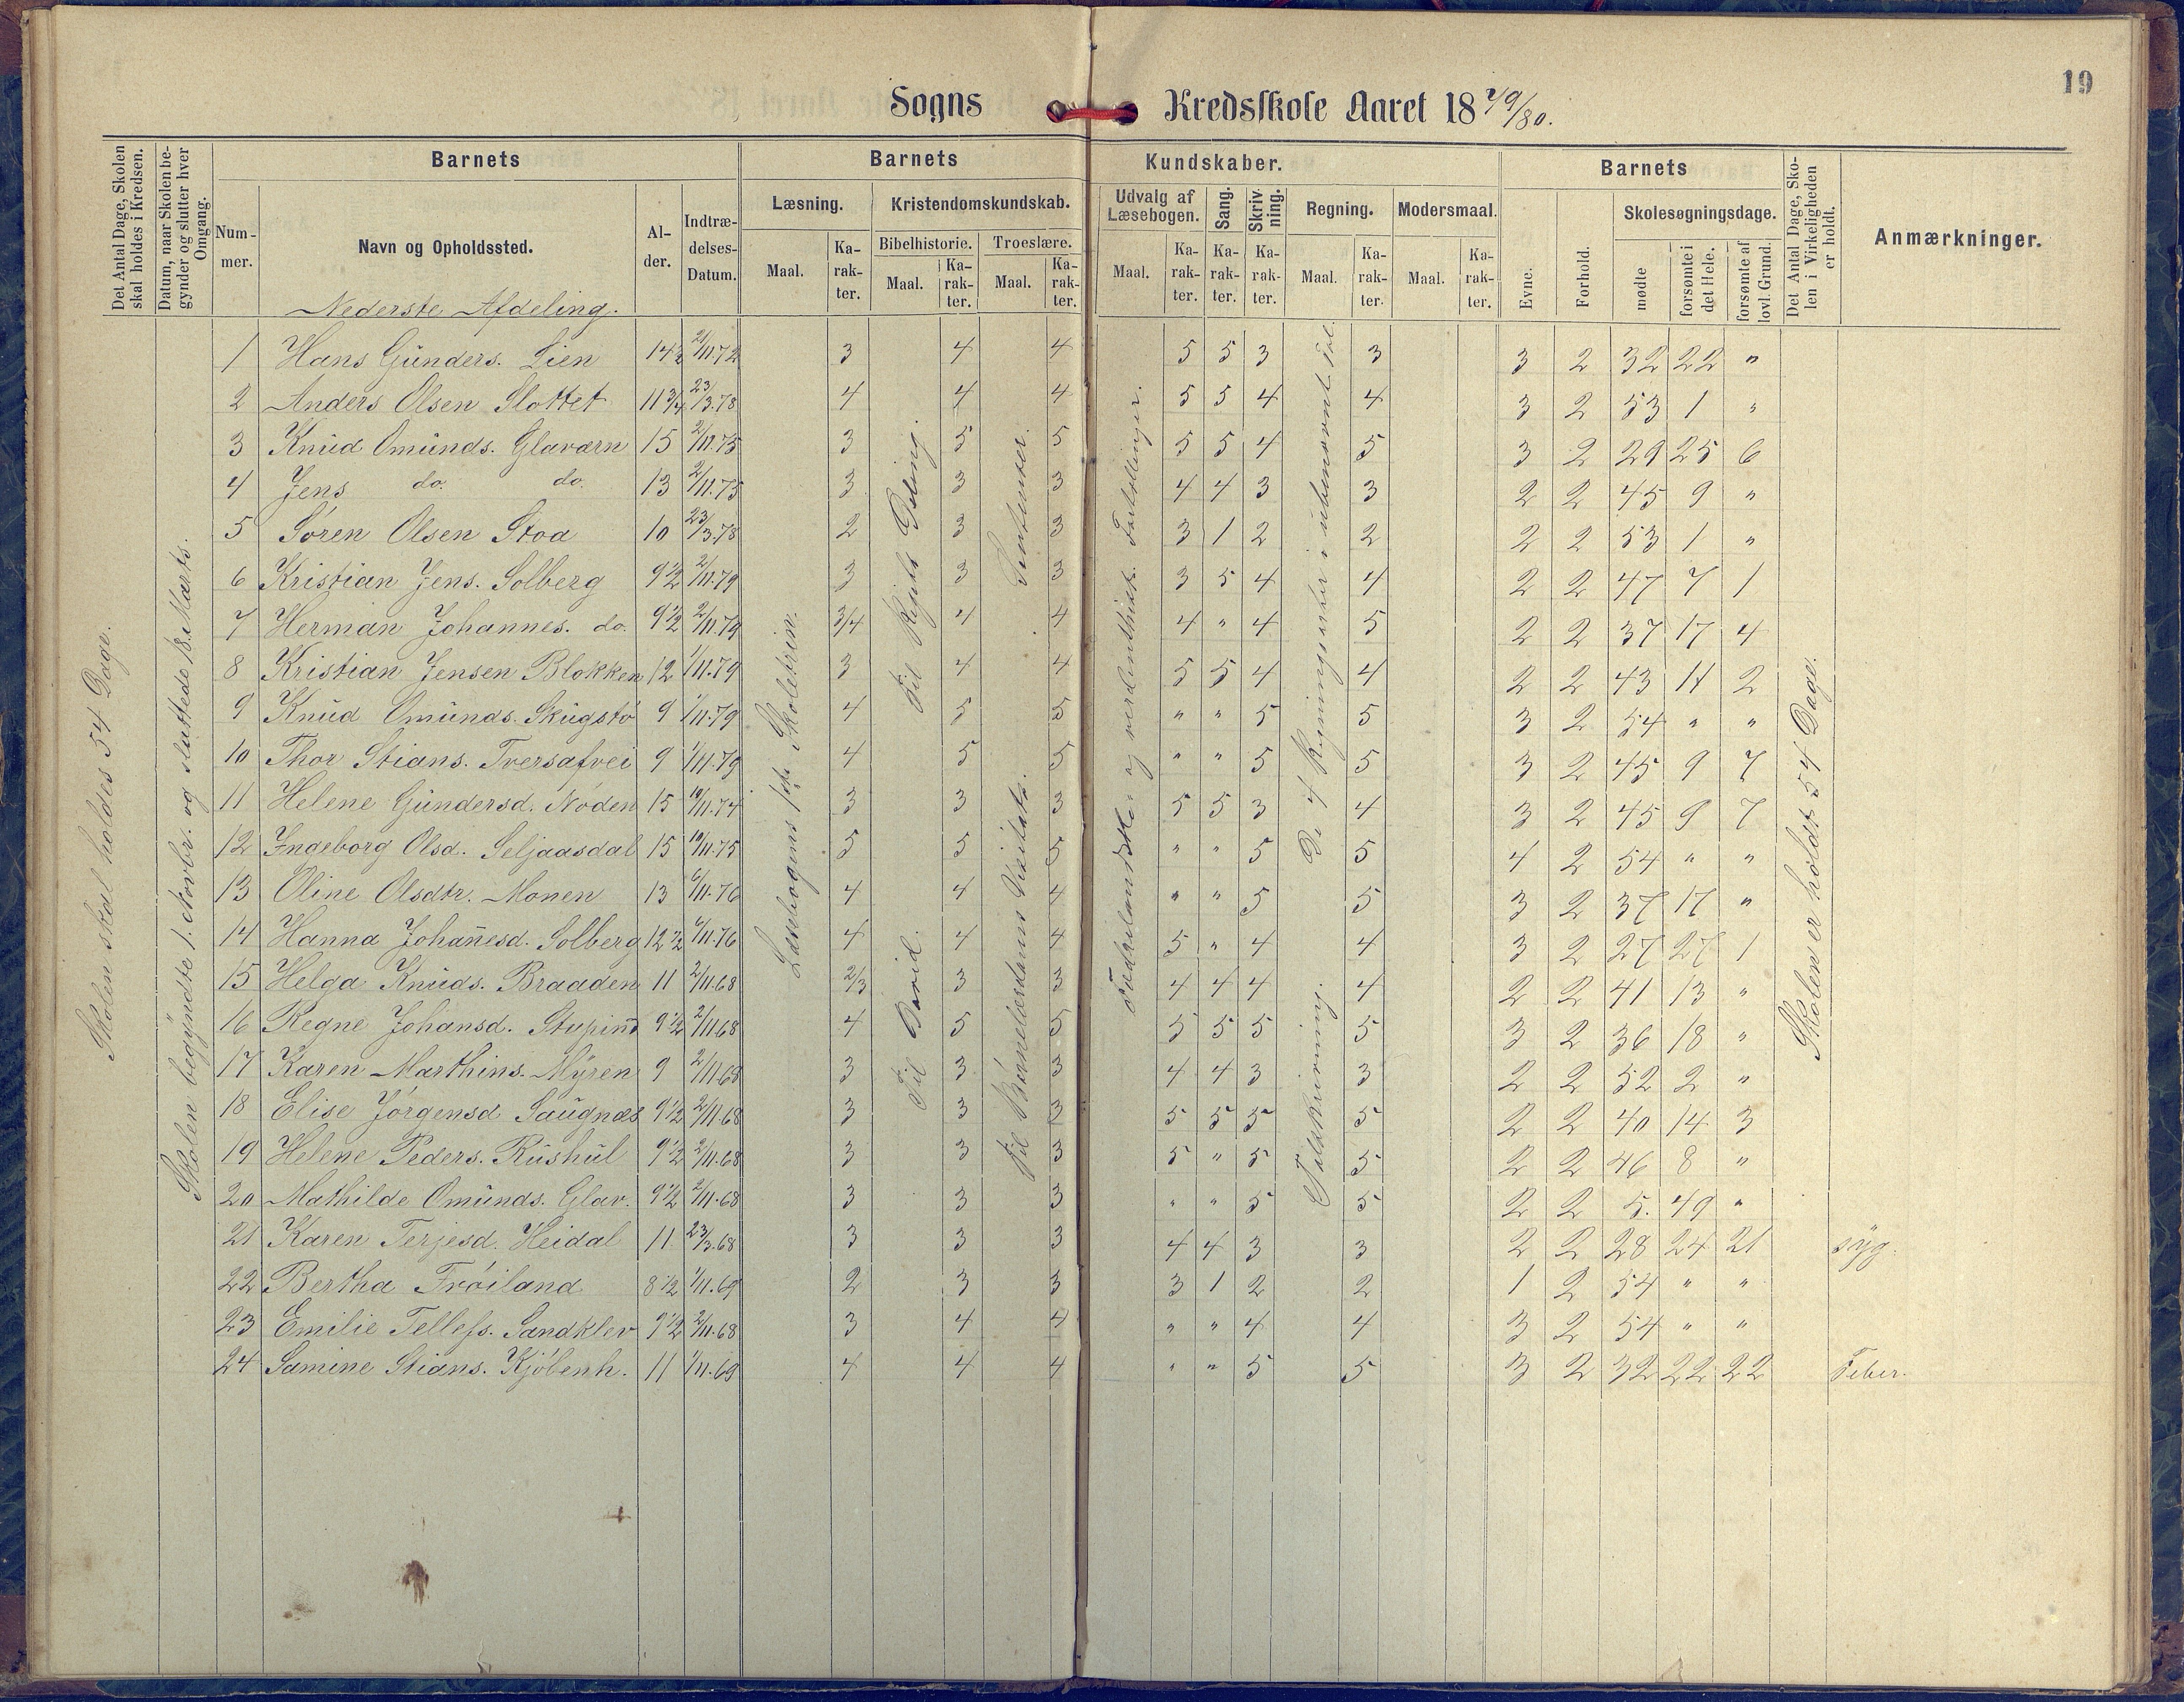 19
Sogns Kredsskole Aaret 1879/80.
Det Antal Dage, Skolen skal holdes i Kredsen.
Datum, naar Skolen begynder og slutter hver Omgang.
Barnets
Nummer.
Navn og Opholdssted.
Alder.
Indtrædelses-Datum.
Barnets Kundskaber.
Læsning.
Maal.
Karakter.
Kristendomskundskab.
Bibelhistorie.
Maal.
Karakter.
Troeslære.
Maal.
Karakter.
Udvalg af Læsebogen.
Maal.
Karakter.
Sang.
Karakter.
Skrivning.
Karakter.
Regning.
Maal.
Karakter.
Modersmaal.
Maal.
Karakter.
Barnets
Evne.
Forhold.
Skolesøgningsdage.
mødte
forsømte i det Hele.
forsømte af lovl. Grund.
Det Antal Dage, Skolen i Virkeligheden er holdt.
Anmærkninger.
Nederste Afdeling.
Skolen skal holdes 54 Dage.
Skolen begyndte 1. Novbr. og sluttede 18. Marts.
Læsebogens 1ste Skoletrin.
Til Rigets Deling.
Til David.
Til Børnelærdoms
De 4 Regningsarter i ubenævnte Tal.
Talskrivning.
Skolen er holdt 54 Dage.
1 Hans Gunders. Lien 14½ 2/11.72 3 4 4 5 5 3 3 3 2 32 22 "
2 Anders Olsen Slottet 11¾ 23/3.78 4 4 4 5 5 4 4 3 2 53 1 "
3 Knud Omunds. Glaværn 15 2/11.75 3 5 5 5 5 4 5 3 2 29 25 6
4 Jens do. do. 13 2/11.75 3 3 3 4 4 3 3 2 2 45 9 "
5 Søren Olsen Stoa 10 23/3.78 2 3 3 3 1 2 2 2 2 53 1 "
6 Kristian Jens. Solberg 9½ 2/11.79 3 3 3 3 5 4 4 2 2 47 7 1
7 Herman Johannes. do. 9½ 2/11.79 3/4 4 4 4 " 4 5 2 2 37 17 4
8 Kristian Jensen Blokken 12 1/11.79 3 4 4 5 5 4 4 2 2 43 11 2
9 Knud Omunds. Skugstø 9 1/11.79 4 5 5 " " 5 5 3 2 54 " "
10 Thor Stians. Tversafvei 9 1/11.79 4 5 5 " " 5 5 3 2 45 9 7
11 Helene Gundersd. Nøden 15 10/11.74 3 3 3 5 5 3 4 3 2 45 9 7
12 Ingeborg Olsd. Seljaasdal 15 10/11.75 5 5 5 " " 5 5 4 2 54 " "
13 Oline Olsdtr. Monen 13 6/11.76 4 4 4 " " 5 5 3 2 37 17 "
14 Hanna Johañesd. Solberg 12½ 6/11.76 4 4 4 5 " 4 4 3 2 27 27 1
15 Helga Knuds. Braaden 11 2/11.68 2/3 3 3 4 4 4 4 2 2 41 13 "
16 Regne Johansd. Stupind 9½ 2/11.68 4 5 5 5 5 5 5 3 2 36 18 "
17 Karen Marthins. Myren 9 2/11.68 3 3 3 4 4 3 3 2 2 52 2 "
18 Elise Jørgensd Saugnæs 9½ 2/11.68 3 3 3 5 5 5 5 2 2 40 14 3
19 Helene Peders. Rushul 9½ 2/11.68 3 3 3 5 " 5 5 2 2 46 8 "
20 Mathilde Omunds. Glav. 9½ 2/11.68 3 3 3 " " 5 5 2 2 5. 49 "
21 Karen Terjesd. Heidal 11 23/3.68 3 3 3 4 4 3 3 2 2 28 24 21 syg.
22 Bertha Frøiland 8½ 1/11.69 2 3 3 3 1 2 2 1 2 54 " "
23 Emilie Tellefs. Sandklev 9½ 2/11.68 3 4 4 " " 4 4 3 2 54 " "
24 Samine Stians. Kjøbenh. 11 1/11.69 4 4 4 " " 5 5 3 2 32 22 22 Feber.